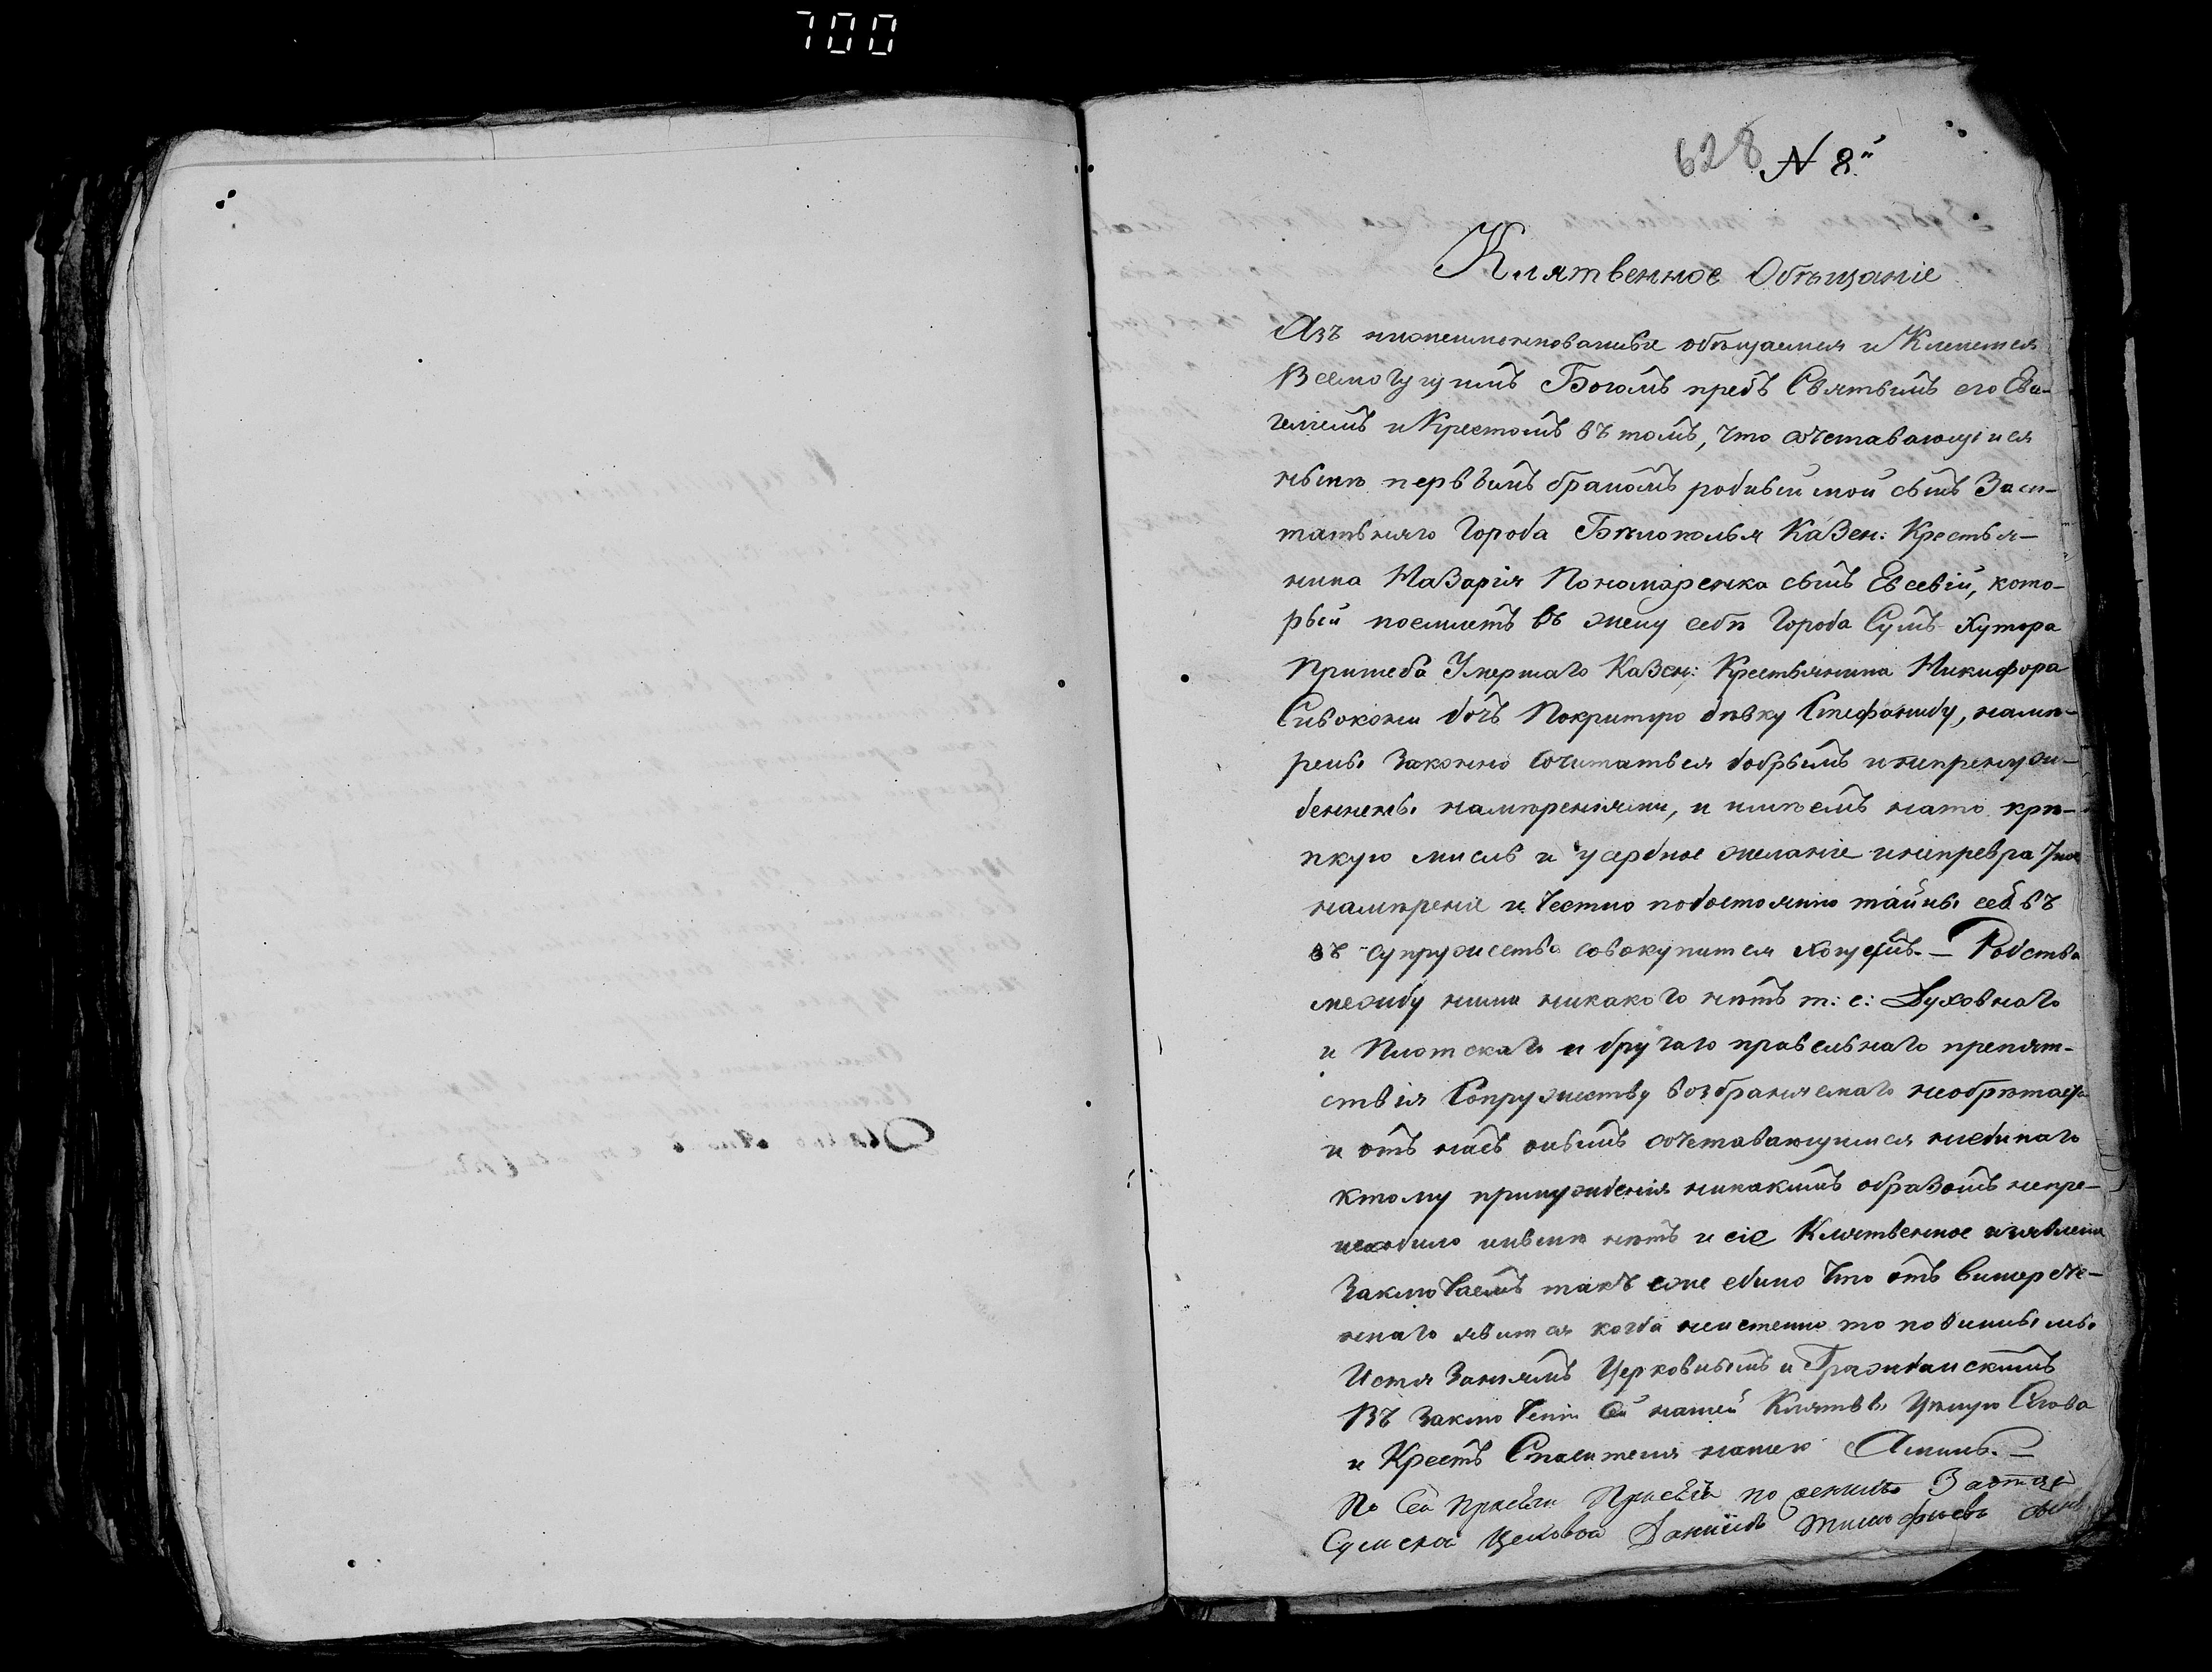 700
628 № 8й
Клятвенное Обѣщаніе
Азъ нижеименнованные обѣщаемся и Кленемся
Всемогущимъ Богомъ предъ Святымъ его Еван-
гелiемъ и Крестомъ въ томъ, что сочетавающiися
нынѣ первымъ бракомъ родный мой сынъ Заш-
татьнаго Города Бѣлополья Казен: Крестья-
нина Назарія Пономаренка сынъ Евсевій, кото-
рый поемлетъ въ жену себѣ Города Сумъ Хутора
Пришеба Умершаго Казен: Крестьянина Никифора
Сивоконя дочь Покритую дѣвку Стефаниду, намѣ-
рены Законно Сочитаться добрымъ и непренуж-
денены намѣреніями, и имѣемъ на то крѣ-
пкую мисль и усердное желаніе и непревра
намѣреніе и Честно подостоянію тайны сей въ
въ супружество совокупится хощемъ. — Родства
между ними никакого нѣтъ т: е: Духовнаго
и Плотскаго и другаго правельнаго препят-
ствія Сопружеству возбраняемаго необрѣтается
и отъ насъ онымъ сочетавающимся ниединаго
ктому принуждения никакимъ образомъ непре-
исходило нинѣ нѣтъ и сіе Клятвенное изявленіе
Заключаемъ такъ еже едино Что отъ вишерече-
ннаго явится когда неистенно то повинны мы
Истязаніямъ Церковнымъ и Гражданскимъ
Въ Заключеніи Сей нашей Клятвы Цѣлую Слова
и Крестъ Спасителя нашего Аминь. —
По Сей Присяги Присягъ по женихѣ
Сумской Цеховой Даніилъ Тимофѣевъ сынъ